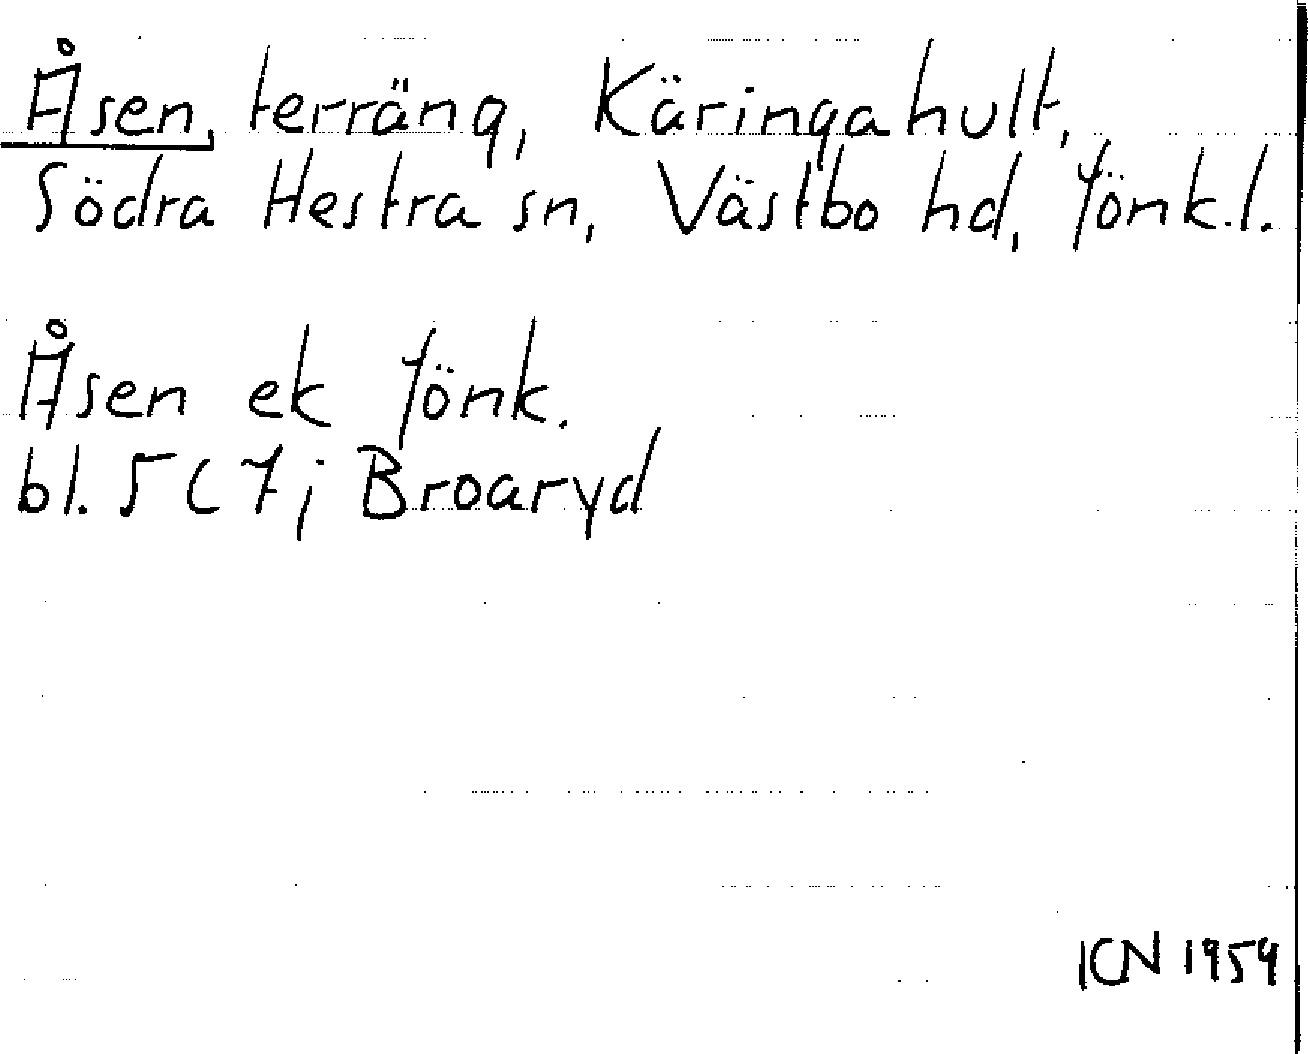 Åsen, terräng, Käringahult,
Södra Hestra sn, Västbo hd, Jönk.l.
Åsen ek Jönk.
bl. 5C7; Broaryd
ICN 1959